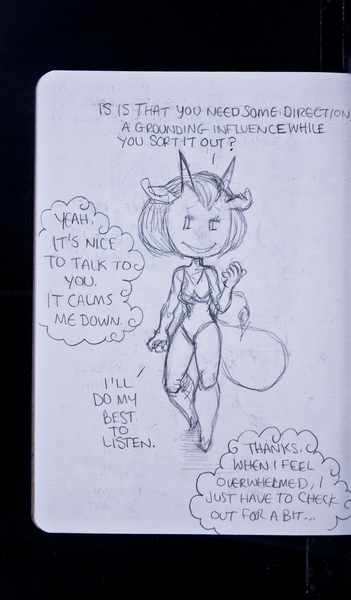 IS IS THAT YOU NEED SOME DIRECTION,
A GROUNDING INFLUENCE WHILE
YOU SORT IT OUT?
YEAH.
IT'S NICE
TO TALK TO
YOU.
IT CALMS
ME DOWN.
I'LL
DO MY
BEST
TO
LISTEN.
THANKS.
WHEN I FEEL
OVERWHELMED, I
JUST HAVE TO CHECK
OUT FOR A BIT...